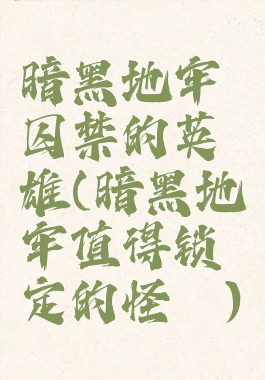 暗黑地牢
囚禁的英
雄(暗黑地
牢值得锁
定的怪 )